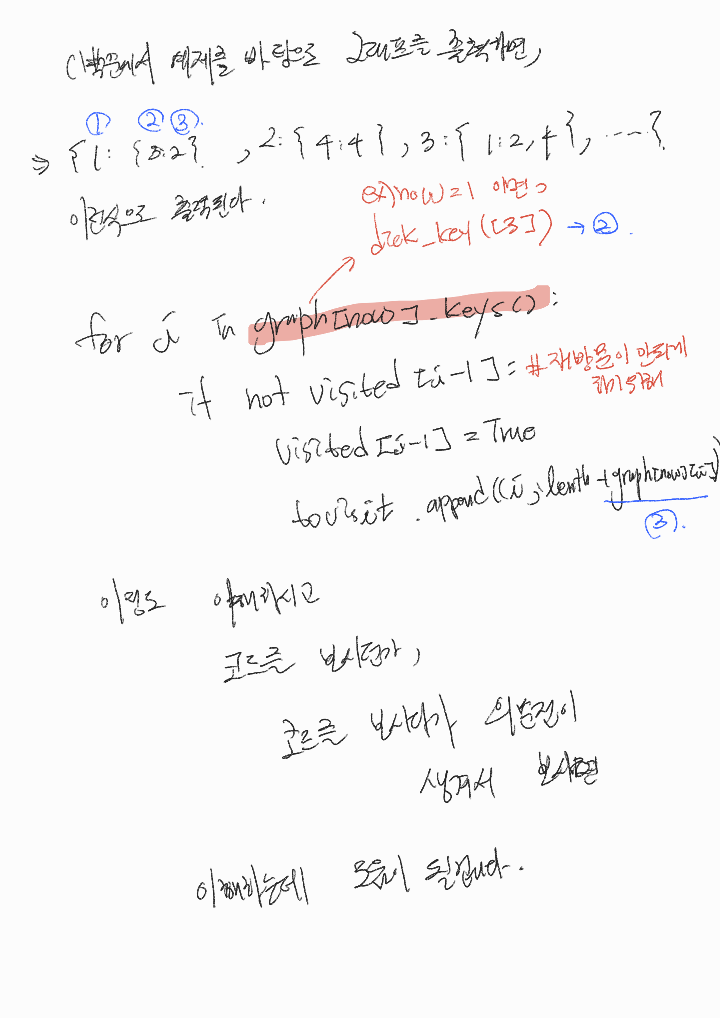 디백준에서 예제를 바탕으로 그래프를 출력하면,
① ② ③
⇒ {1: {3:2} , 2: {4:4} , 3: {1:2, 4}, ....}
이런식으로 출력된다.
ex) now = 1 이면
dick_key([3]) → ②.
for i in graph[now].keys():
if not visited[i-1]: # 재방문이 안되게
하기위해
visited[i-1] = True
tovisit.append((i, lenth + graph[now][i])
③.
이정도 이해하시고
코드를 보시던가,
코드를 보시다가 의문점이
생겨서 보시면
이해하는데 도움이 될겁니다.